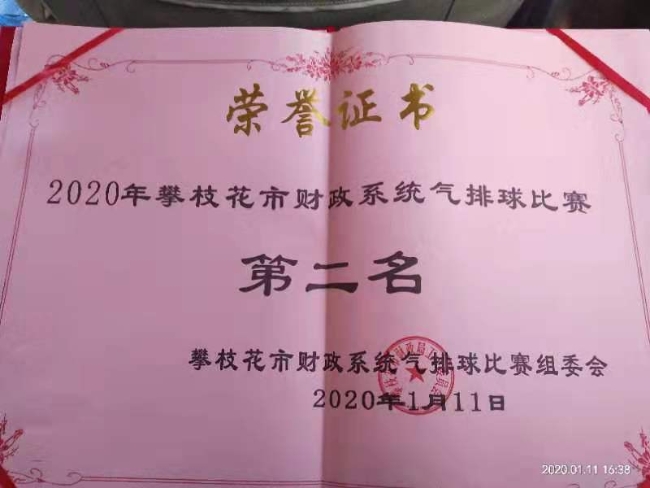 荣誉证书
2020年攀枝花市财政系统气排球比赛
第二名
攀枝花市财政系统气排球比赛组委会
2020年1月11日
2020.01.11 16:38